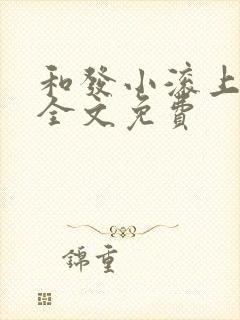 和發小滾上
全文免費
錦重